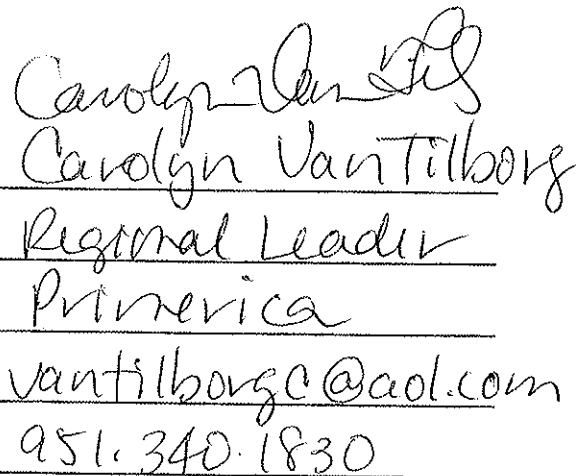 Carolyn Van Til
Carolyn VanTilborg
Regional Leader
Primerica
vantilborgc@aol.com
951.340.1830